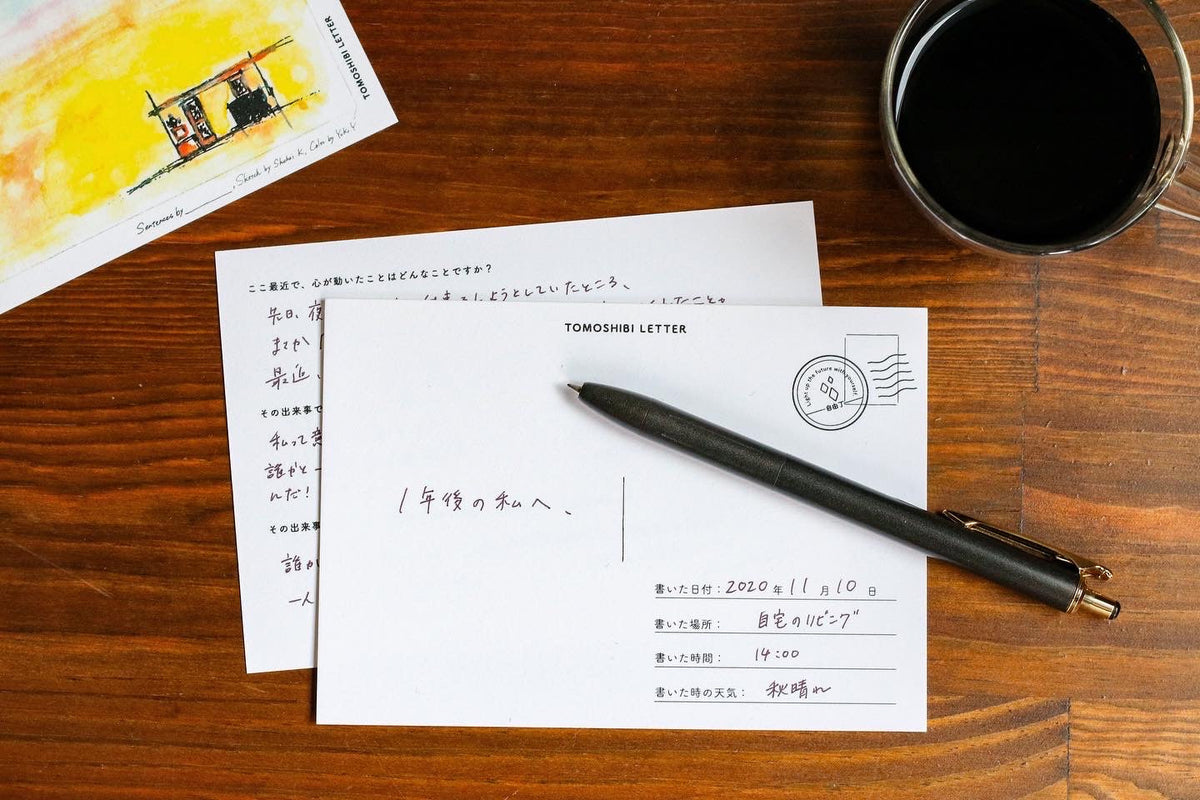 TOMOSHIBI LETTER
Sentences by , Sketch by Shohei K, Color by Yuki Y
ここ最近で、心が動いたことはどんなことですか？
先日、夜
しようとしていたところ、
したこと。
まさか
最近、
その出来事で
私って意
誰かと一
んだ！
その出来事
誰か
一人
TOMOSHIBI LETTER
Light up the future with yourself.
自由丁
1年後の私へ、
書いた日付：2020年11月10日
書いた場所：自宅のリビング
書いた時間：14:00
書いた時の天気：秋晴れ